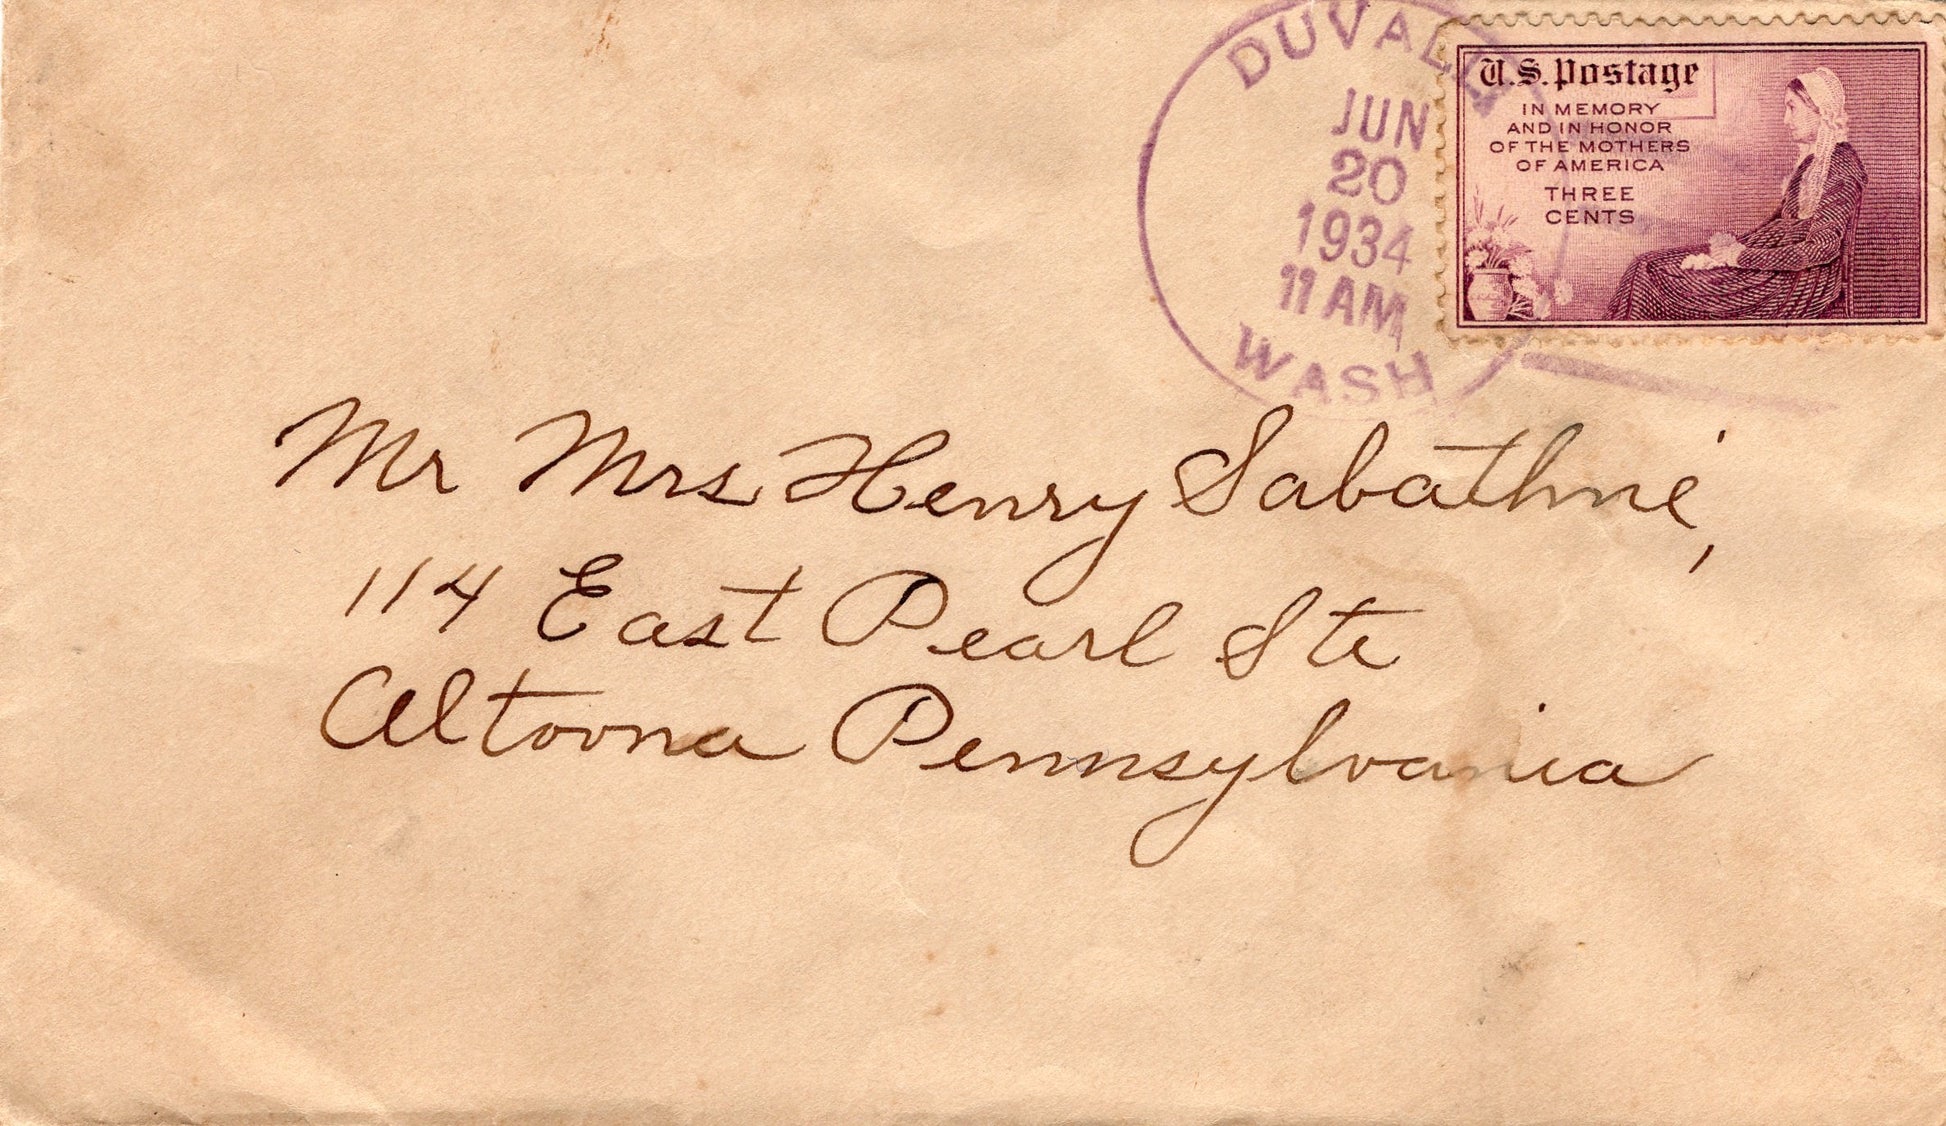 DUVALL
JUN
20
1934
11 AM
WASH
U.S. Postage
IN MEMORY
AND IN HONOR
OF THE MOTHERS
OF AMERICA
THREE
CENTS
Mr Mrs Henry Sabathne,
114 East Pearl Ste
Altoona Pennsylvania